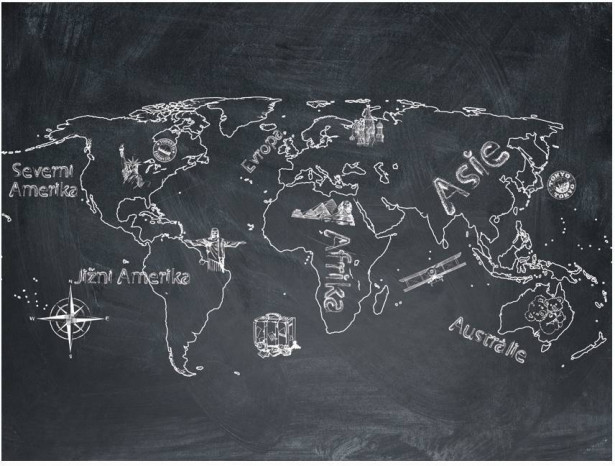 Evropa
Asie
Severní
Amerika
TOKYO
Afrika
Jižní Amerika
W
E
Austrálie